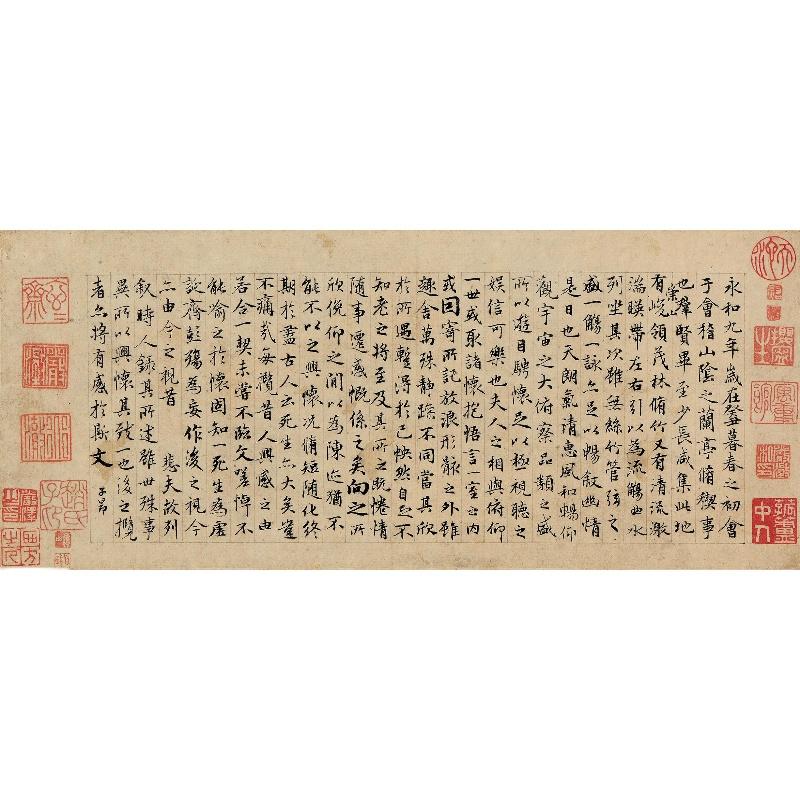 永和九年歲在癸丑暮春之初會
于會稽山陰之蘭亭脩稧事
也羣賢畢至少長咸集此地
有崇峻領茂林脩竹又有清流激
湍暎帶左右引以為流觴曲水
列坐其次雖無絲竹管弦之
盛一觴一詠亦足以暢敘幽情
是日也天朗氣清惠風和暢仰
觀宇宙之大俯察品類之盛
所以遊目騁懷足以極視聽之
娛信可樂也夫人之相與俯仰
一世或取諸懷抱悟言一室之內
或因寄所託放浪形骸之外雖
趣舍萬殊静躁不同當其欣
於所遇蹔得於己怏然自足不
知老之將至及其所之既惓情
隨事遷感慨係之矣向之所
欣俛仰之間以為陳迹猶不
能不以之興懷況脩短隨化終
期於盡古人云死生亦大矣豈
不痛哉每攬昔人興感之由
若合一契未嘗不臨文嗟悼不
能喻之於懷固知一死生為虛
誕齊彭殤為妄作後之視今
亦由今之視昔 悲夫故列
敘時人錄其所述雖世殊事
異所以興懷其致一也後之攬
者亦將有感於斯文
子昂
趙氏子昂